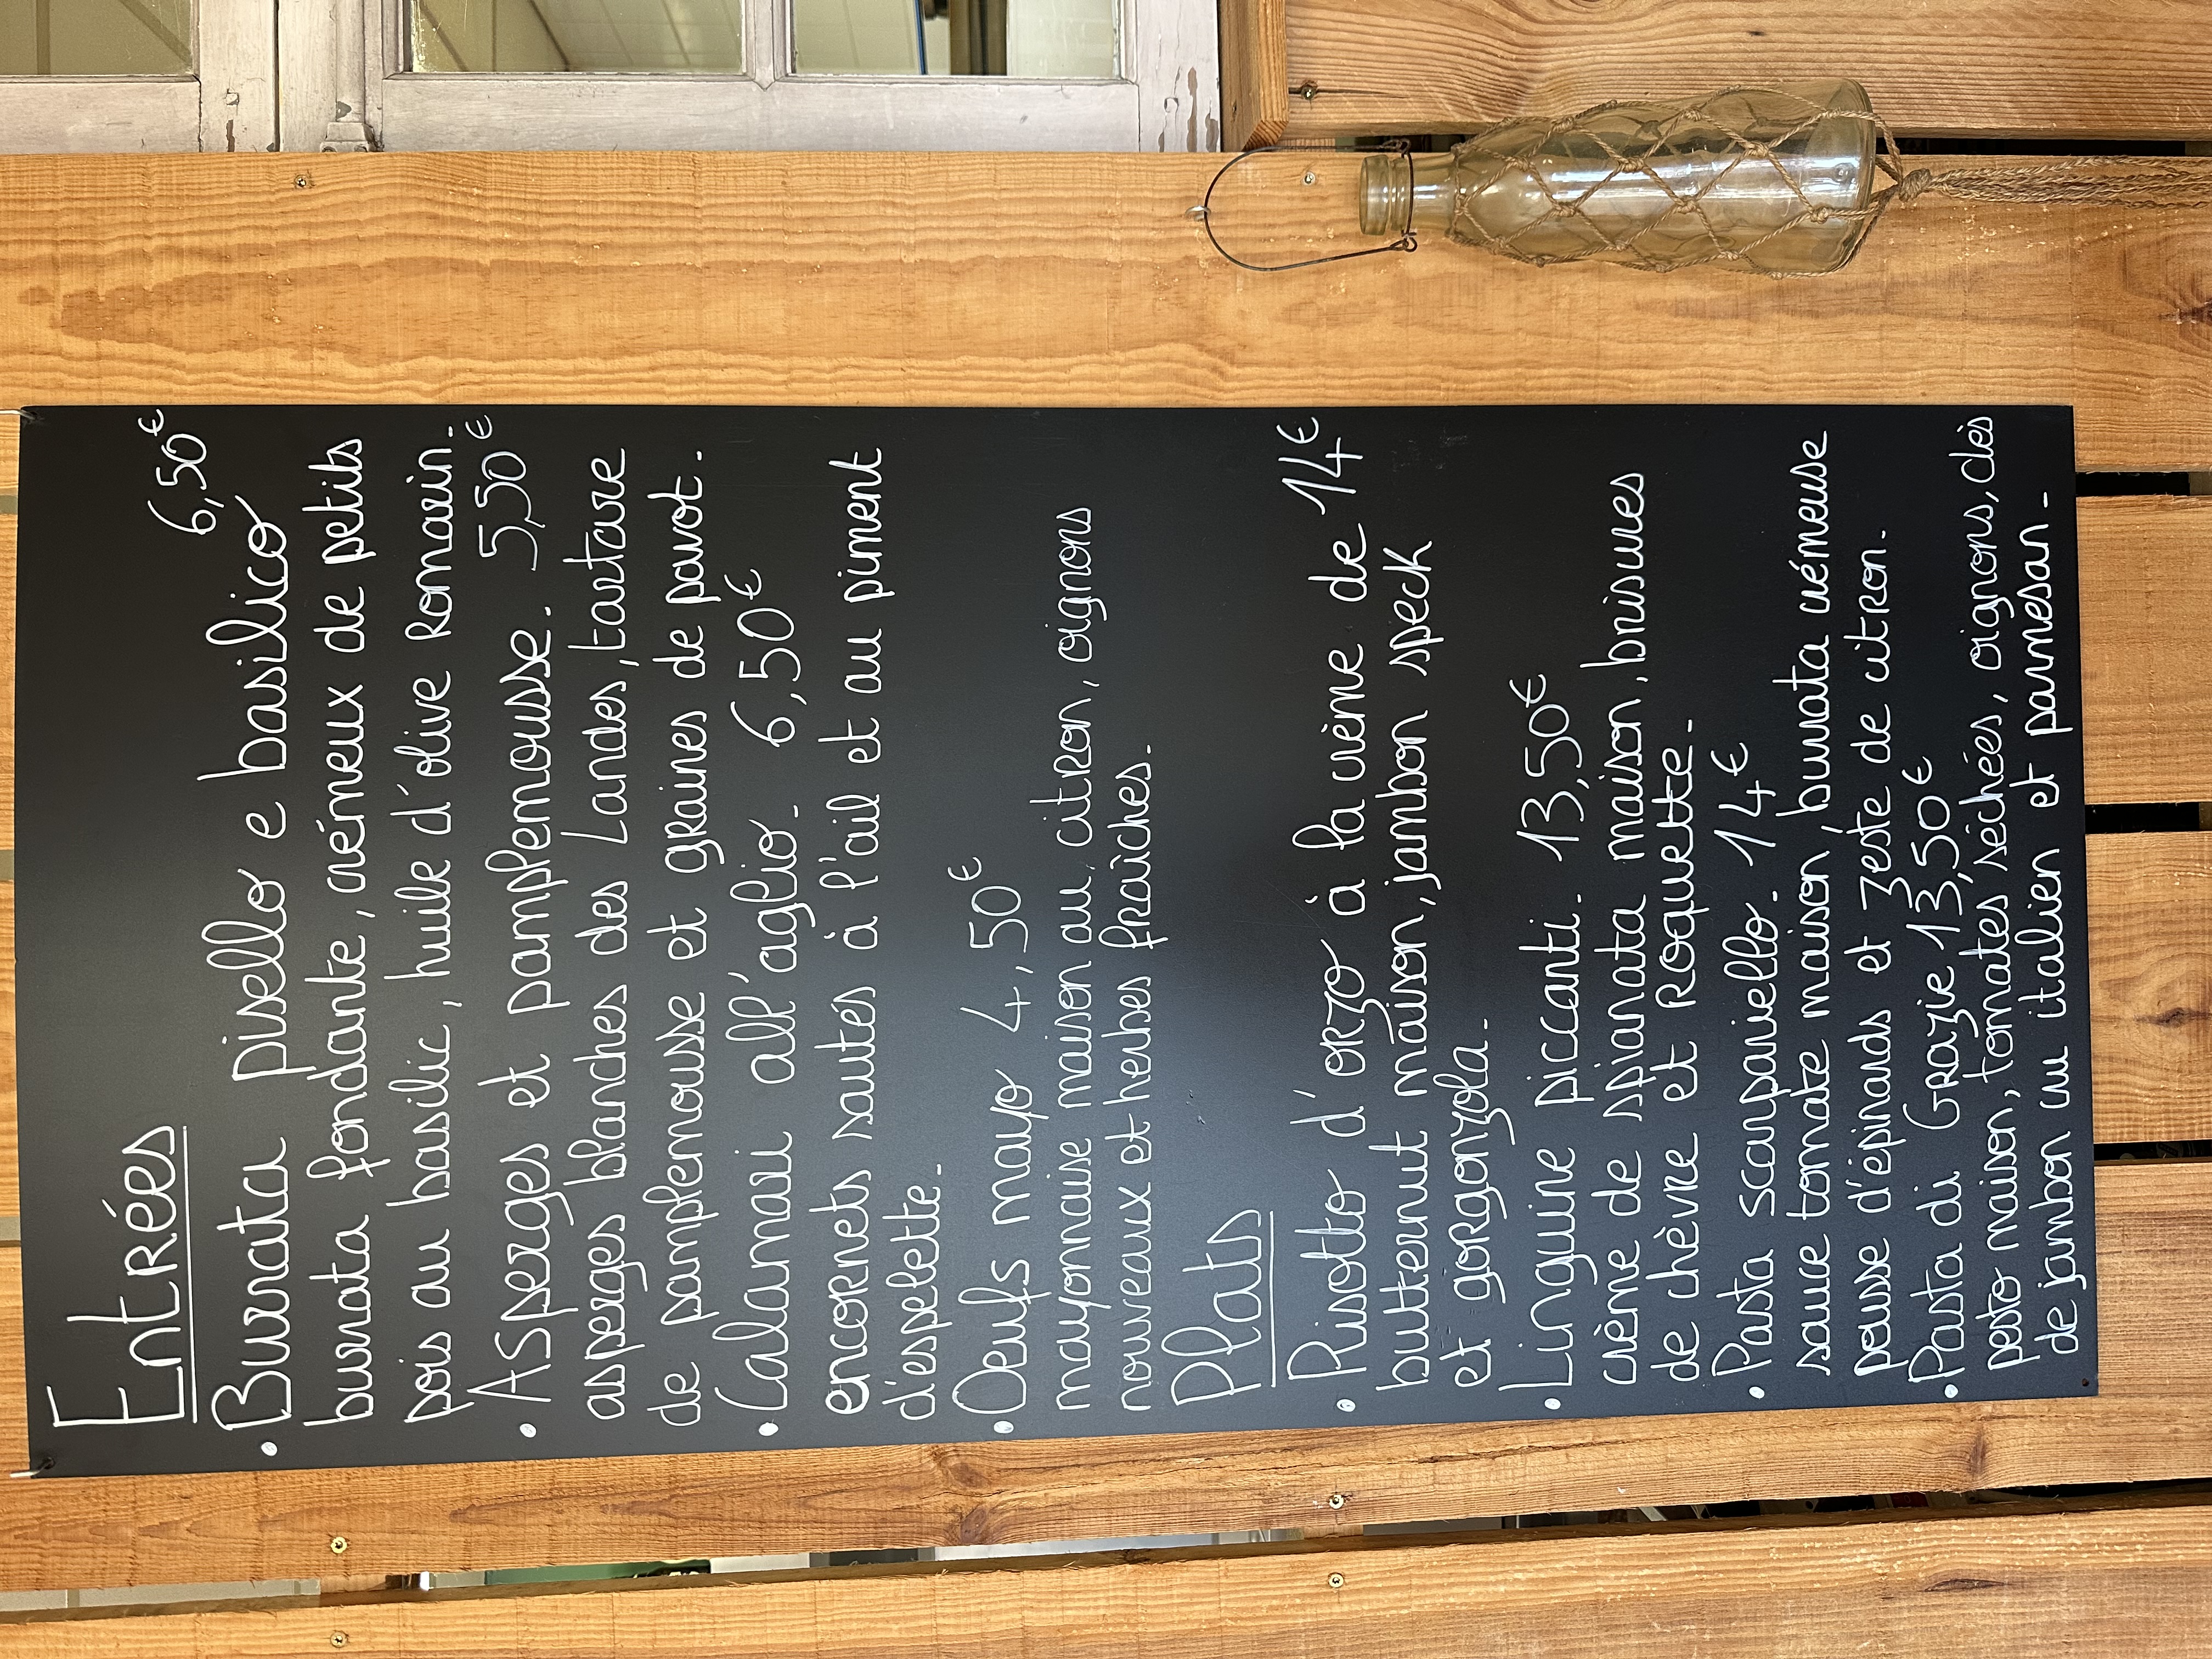 Entrées
6,50€
• Burrata pisello e basilico
burrata fondante, crémeux de petits
pois au basilic, huile d'olive Romarin.
• Asperges et pamplemousse. 5,50€
asperges blanches des Landes, tartare
de pamplemousse et graines de pavot.
• Calamari all'aglio. 6,50€
encornets sautés à l'ail et au piment
d'espelette.
• Oeufs mayo 4,50€
mayonnaise maison au citron, oignons
nouveaux et herbes fraîches.
Plats
• Risotto d'orzo à la crème de 14€
butternut maison, jambon speck
et gorgonzola.
• Linguine piccanti. 13,50€
crème de spianata maison, brisures
de chèvre et Roquette.
• Pasta scarpariello. 14€
sauce tomate maison, burrata crémeuse
pousse d'épinards et zeste de citron.
• Pasta di Grazie 13,50€
pesto maison, tomates séchées, oignons, dès
de jambon cru italien et parmesan.